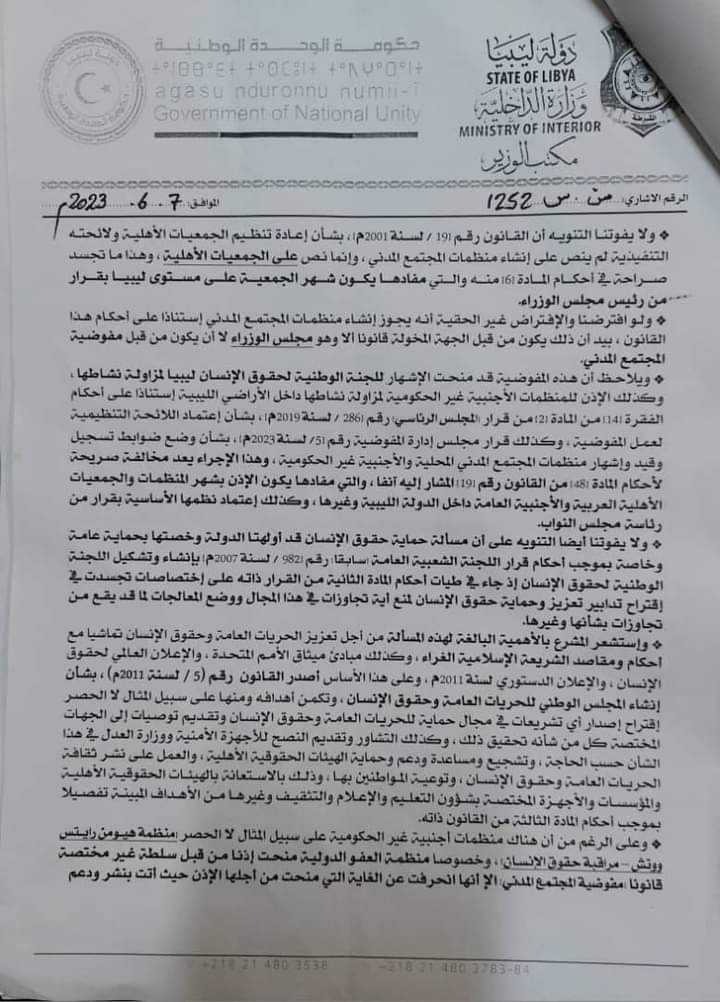 حكومة الوحدة الوطنية
agasu nduronnu numii-i
Government of National Unity
دولة ليبيا
STATE OF LIBYA
وزارة الداخلية
MINISTRY OF INTERIOR
مكتب الوزير
الرقم الاشاري: 1252 الموافق: 7 6 2023م
❖ ولا يفوتنا التنويه أن القانون رقم (19 / لسنة 2001م)، بشأن إعادة تنظيم الجمعيات الأهلية ولائحته
التنفيذية لم ينص على إنشاء منظمات المجتمع المدني، وإنما نص على الجمعيات الأهلية، وهذا ما تجسد
صراحة في أحكام المادة (6) منه والتي مفادها يكون شهر الجمعية على مستوى ليبيا بقرار
من رئيس مجلس الوزراء.
❖ ولو افترضنا والإفتراض غير الحقية أنه يجوز إنشاء منظمات المجتمع المدني إستناداً على أحكام هذا
القانون، بيد أن ذلك يكون من قبل الجهة المخولة قانونا ألا وهو مجلس الوزراء لا أن يكون من قبل مفوضية
المجتمع المدني.
❖ ويلاحظ أن هذه المفوضية قد منحت الإشهار للجنة الوطنية لحقوق الإنسان ليبيا لمزاولة نشاطها،
وكذلك الإذن للمنظمات الأجنبية غير الحكومية لمزاولة نشاطها داخل الأراضي الليبية إستناداً على أحكام
الفقرة (14) من المادة (2) من قرار (المجلس الرئاسي) رقم (286 / لسنة 2019م)، بشأن إعتماد اللائحة التنظيمية
لعمل المفوضية، وكذلك قرار مجلس إدارة المفوضية رقم (5/ لسنة 2023م)، بشأن وضع ضوابط تسجيل
وقيد وإشهار منظمات المجتمع المدني المحلية والأجنبية غير الحكومية، وهذا الإجراء يعد مخالفة صريحة
لأحكام المادة (48) من القانون رقم (19) المشار إليه آنفا، والتي مفادها يكون الإذن بشهر المنظمات والجمعيات
الأهلية العربية والأجنبية العامة داخل الدولة الليبية وغيرها، وكذلك إعتماد نظمها الأساسية بقرار من
رئاسة مجلس النواب.
❖ ولا يفوتنا أيضا التنويه على أن مسألة حماية حقوق الإنسان قد أولهتا الدولة وخصتها بحماية عامة
وخاصة بموجب أحكام قرار اللجنة الشعبية العامة (سابقا) رقم (982 / لسنة 2007م) بإنشاء وتشكيل اللجنة
الوطنية لحقوق الإنسان إذ جاء في طيات أحكام المادة الثانية من القرار ذاته على إختصاصات تجسدت في
إقتراح تدابير تعزيز وحماية حقوق الإنسان لمنع أية تجاوزات في هذا المجال ووضع المعالجات لما قد يقع من
تجاوزات بشأنها وغيرها.
❖ وإستشعر المشرع بالأهمية البالغة لهذه المسألة من أجل تعزيز الحريات العامة وحقوق الإنسان تماشيا مع
أحكام ومقاصد الشريعة الإسلامية الغراء، وكذلك مبادئ ميثاق الأمم المتحدة، والإعلان العالمي لحقوق
الإنسان، والإعلان الدستوري لسنة 2011م، وعلى هذا الأساس أصدر القانون رقم (5 / لسنة 2011م)، بشأن
إنشاء المجلس الوطني للحريات العامة وحقوق الإنسان، وتكمن أهدافه ومنها على سبيل المثال لا الحصر
إقتراح إصدار أي تشريعات في مجال حماية للحريات العامة وحقوق الإنسان وتقديم توصيات إلى الجهات
المختصة كل من شأنه تحقيق ذلك، وكذلك التشاور وتقديم النصح للأجهزة الأمنية ووزارة العدل في هذا
الشأن حسب الحاجة، وتشجيع ومساعدة ودعم وحماية الهيئات الحقوقية الأهلية، والعمل على نشر ثقافة
الحريات العامة وحقوق الإنسان، وتوعية المواطنين بها، وذلك بالاستعانة بالهيئات الحقوقية الأهلية
والمؤسسات والأجهزة المختصة بشؤون التعليم والإعلام والتثقيف وغيرها من الأهداف المبينة تفصيلا
بموجب أحكام المادة الثالثة من القانون ذاته.
❖ وعلى الرغم من أن هناك منظمات أجنبية غير الحكومية على سبيل المثال لا الحصر (منظمة هيومن رايتس
ووتش – مراقبة حقوق الإنسان)، وخصوصا منظمة العفو الدولية منحت إذنا من قبل سلطة غير مختصة
قانونا (مفوضية المجتمع المدني) إلا أنها انحرفت عن الغاية التي منحت من أجلها الإذن حيث أتت بنشر ودعم
+218 21 480 3538 +218 21 480 3783-84